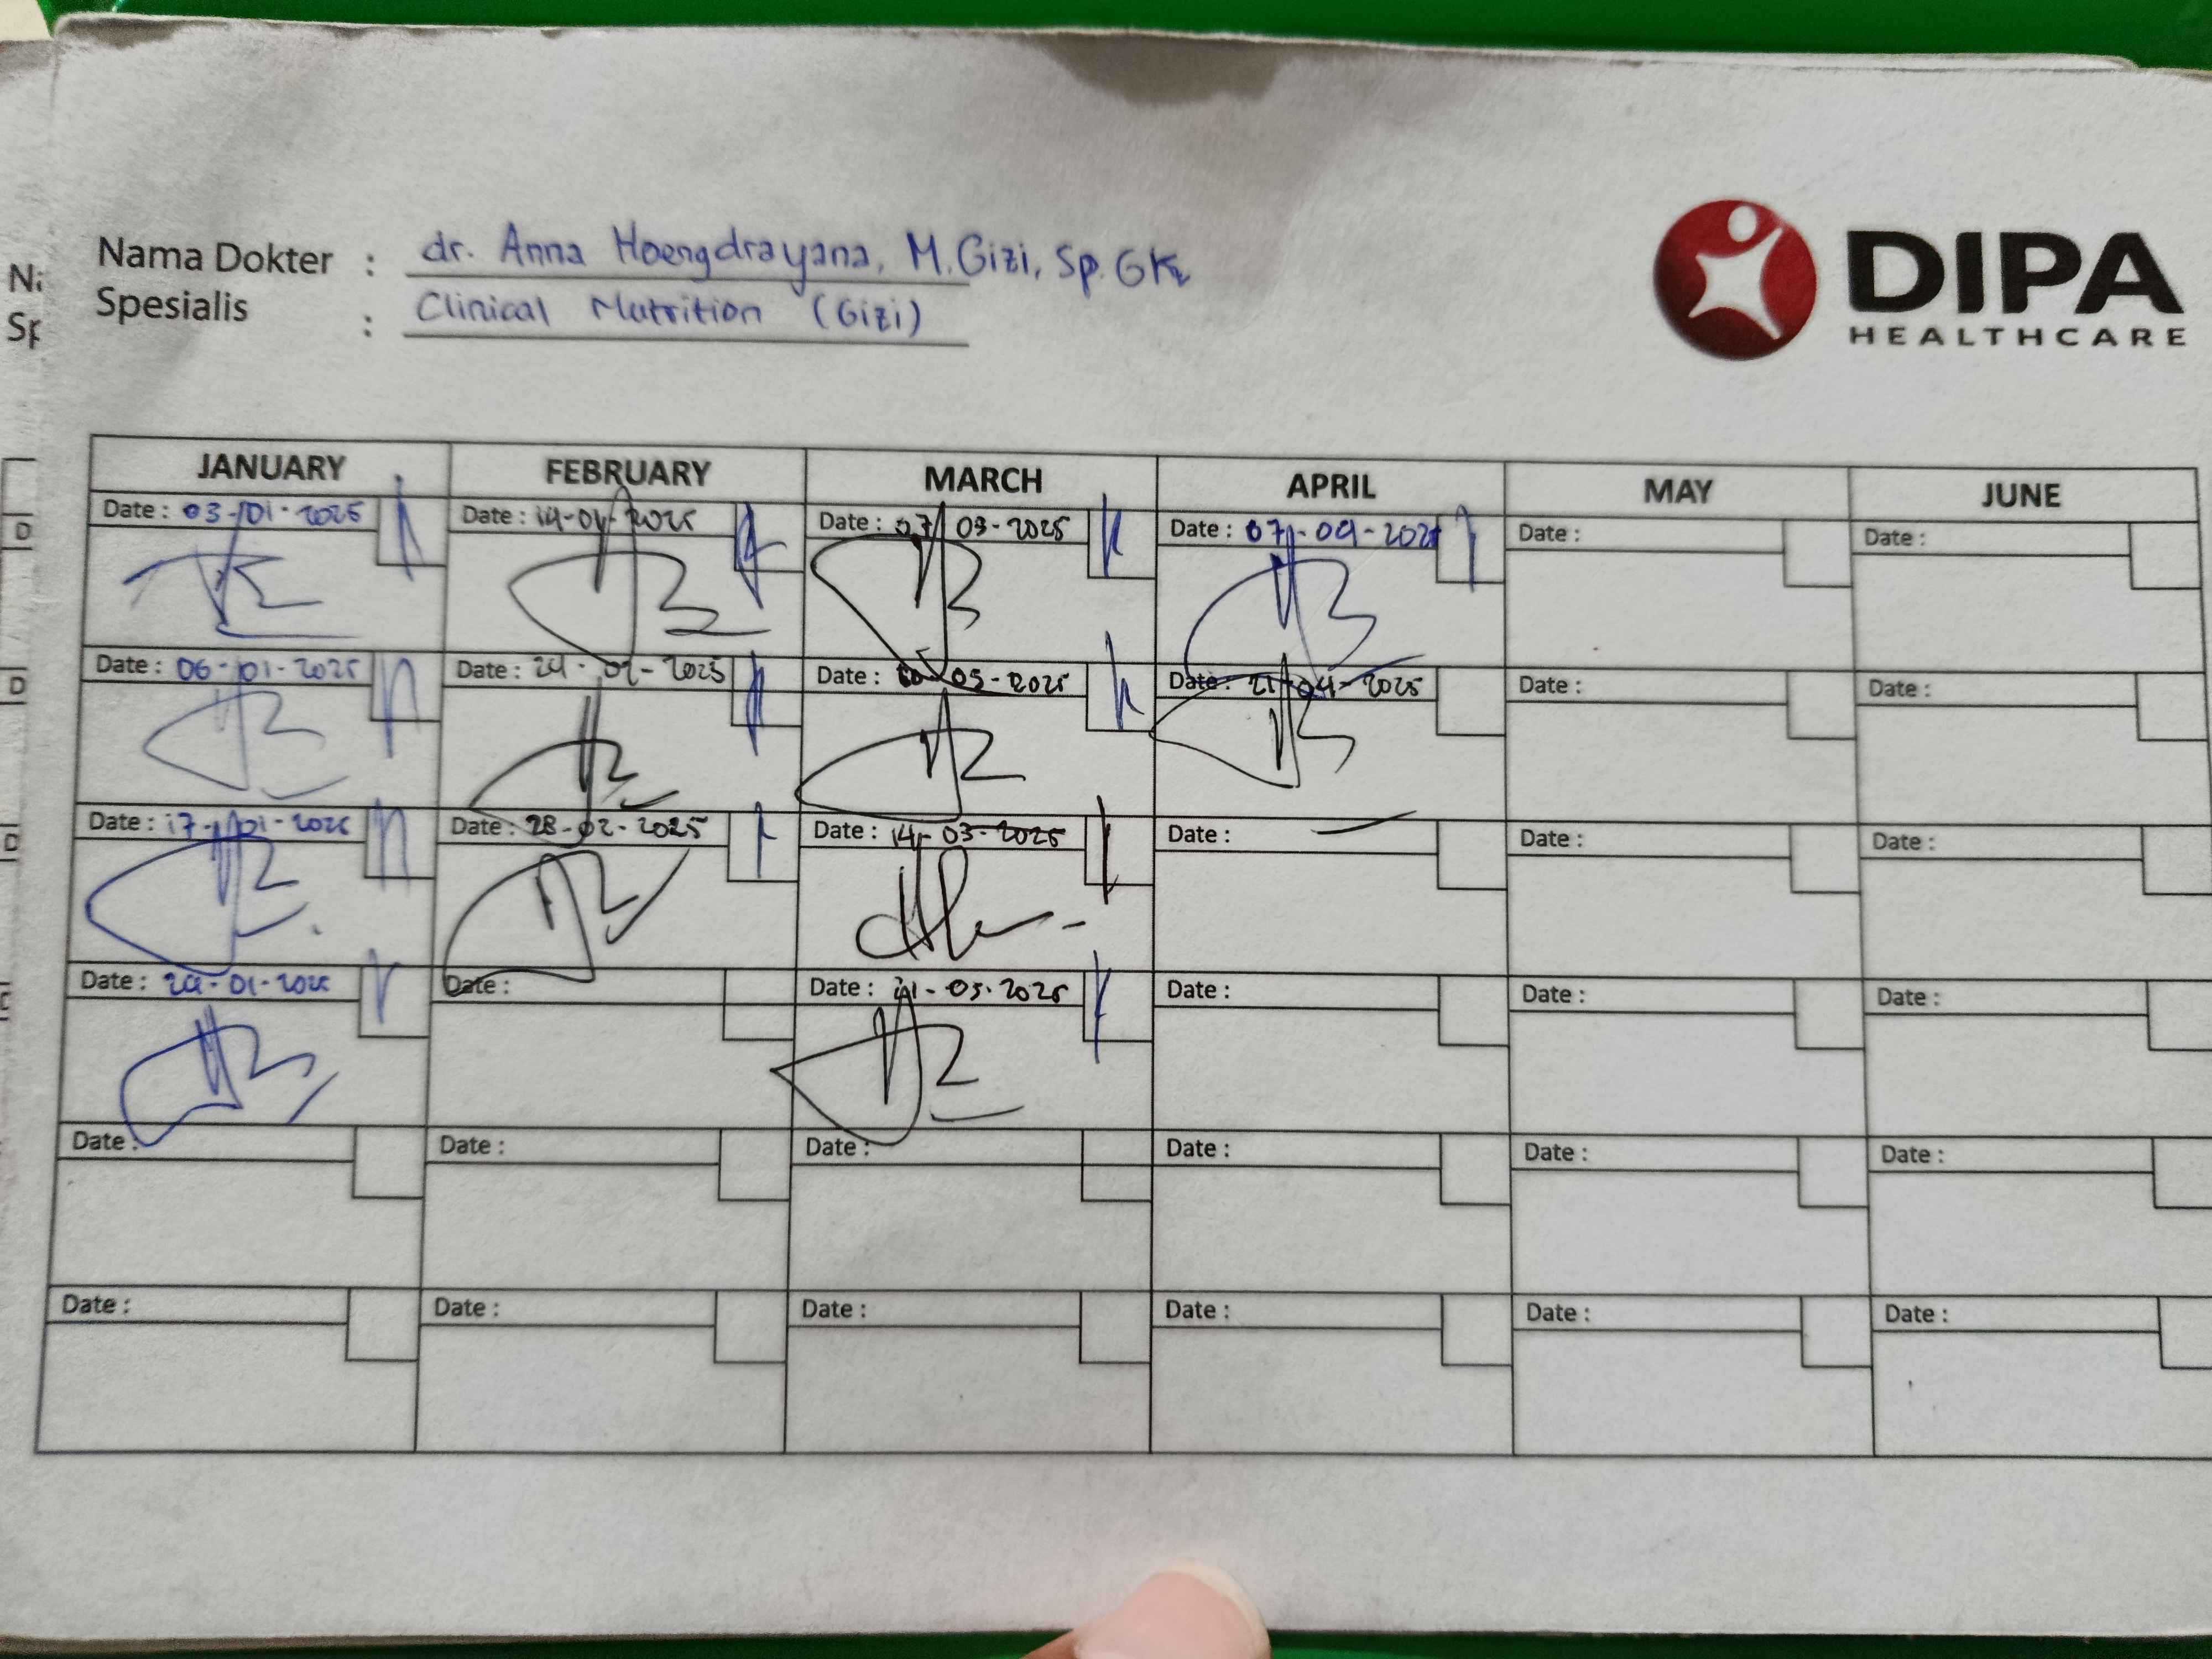 Nama Dokter : dr. Anna Hoengdrayana, M.Gizi, Sp.GK
Spesialis : Clinical Nutrition (Gizi)
DIPA
HEALTHCARE
JANUARY FEBRUARY MARCH APRIL MAY JUNE
Date : 03-01-2025 Date : 14-02-2025 Date : 07 03-2025 Date : 07-04-2025 Date : Date :
Date : 06-01-2025 Date : 24-02-2025 Date : 03-2025 Date : 21-04-2025 Date : Date :
Date : 17-01-2025 Date : 28-02-2025 Date : 14-03-2025 Date : Date : Date :
Date : 24-01-2025 Date : Date : 21-03-2025 Date : Date : Date :
Date : Date : Date : Date : Date : Date :
Date : Date : Date : Date : Date : Date :